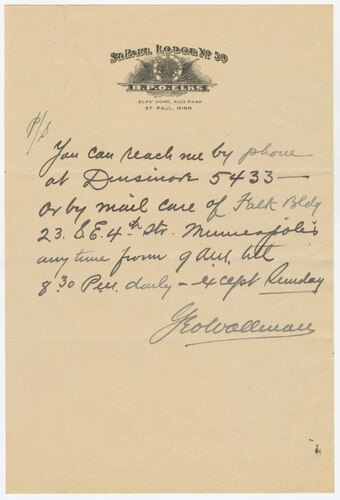 St. Paul Lodge No 59
B.P.O. ELKS
ELKS' HOME, RICE PARK
ST PAUL, MINN.
P/S
You can reach me by phone
at Dinsmore 5433 —
or by mail care of Falk Bldg
23. S.E. 4th Str. Minneapolis
any time from 9 Am. till
8.30 Pm. daily — except Sunday
Geo Wallman